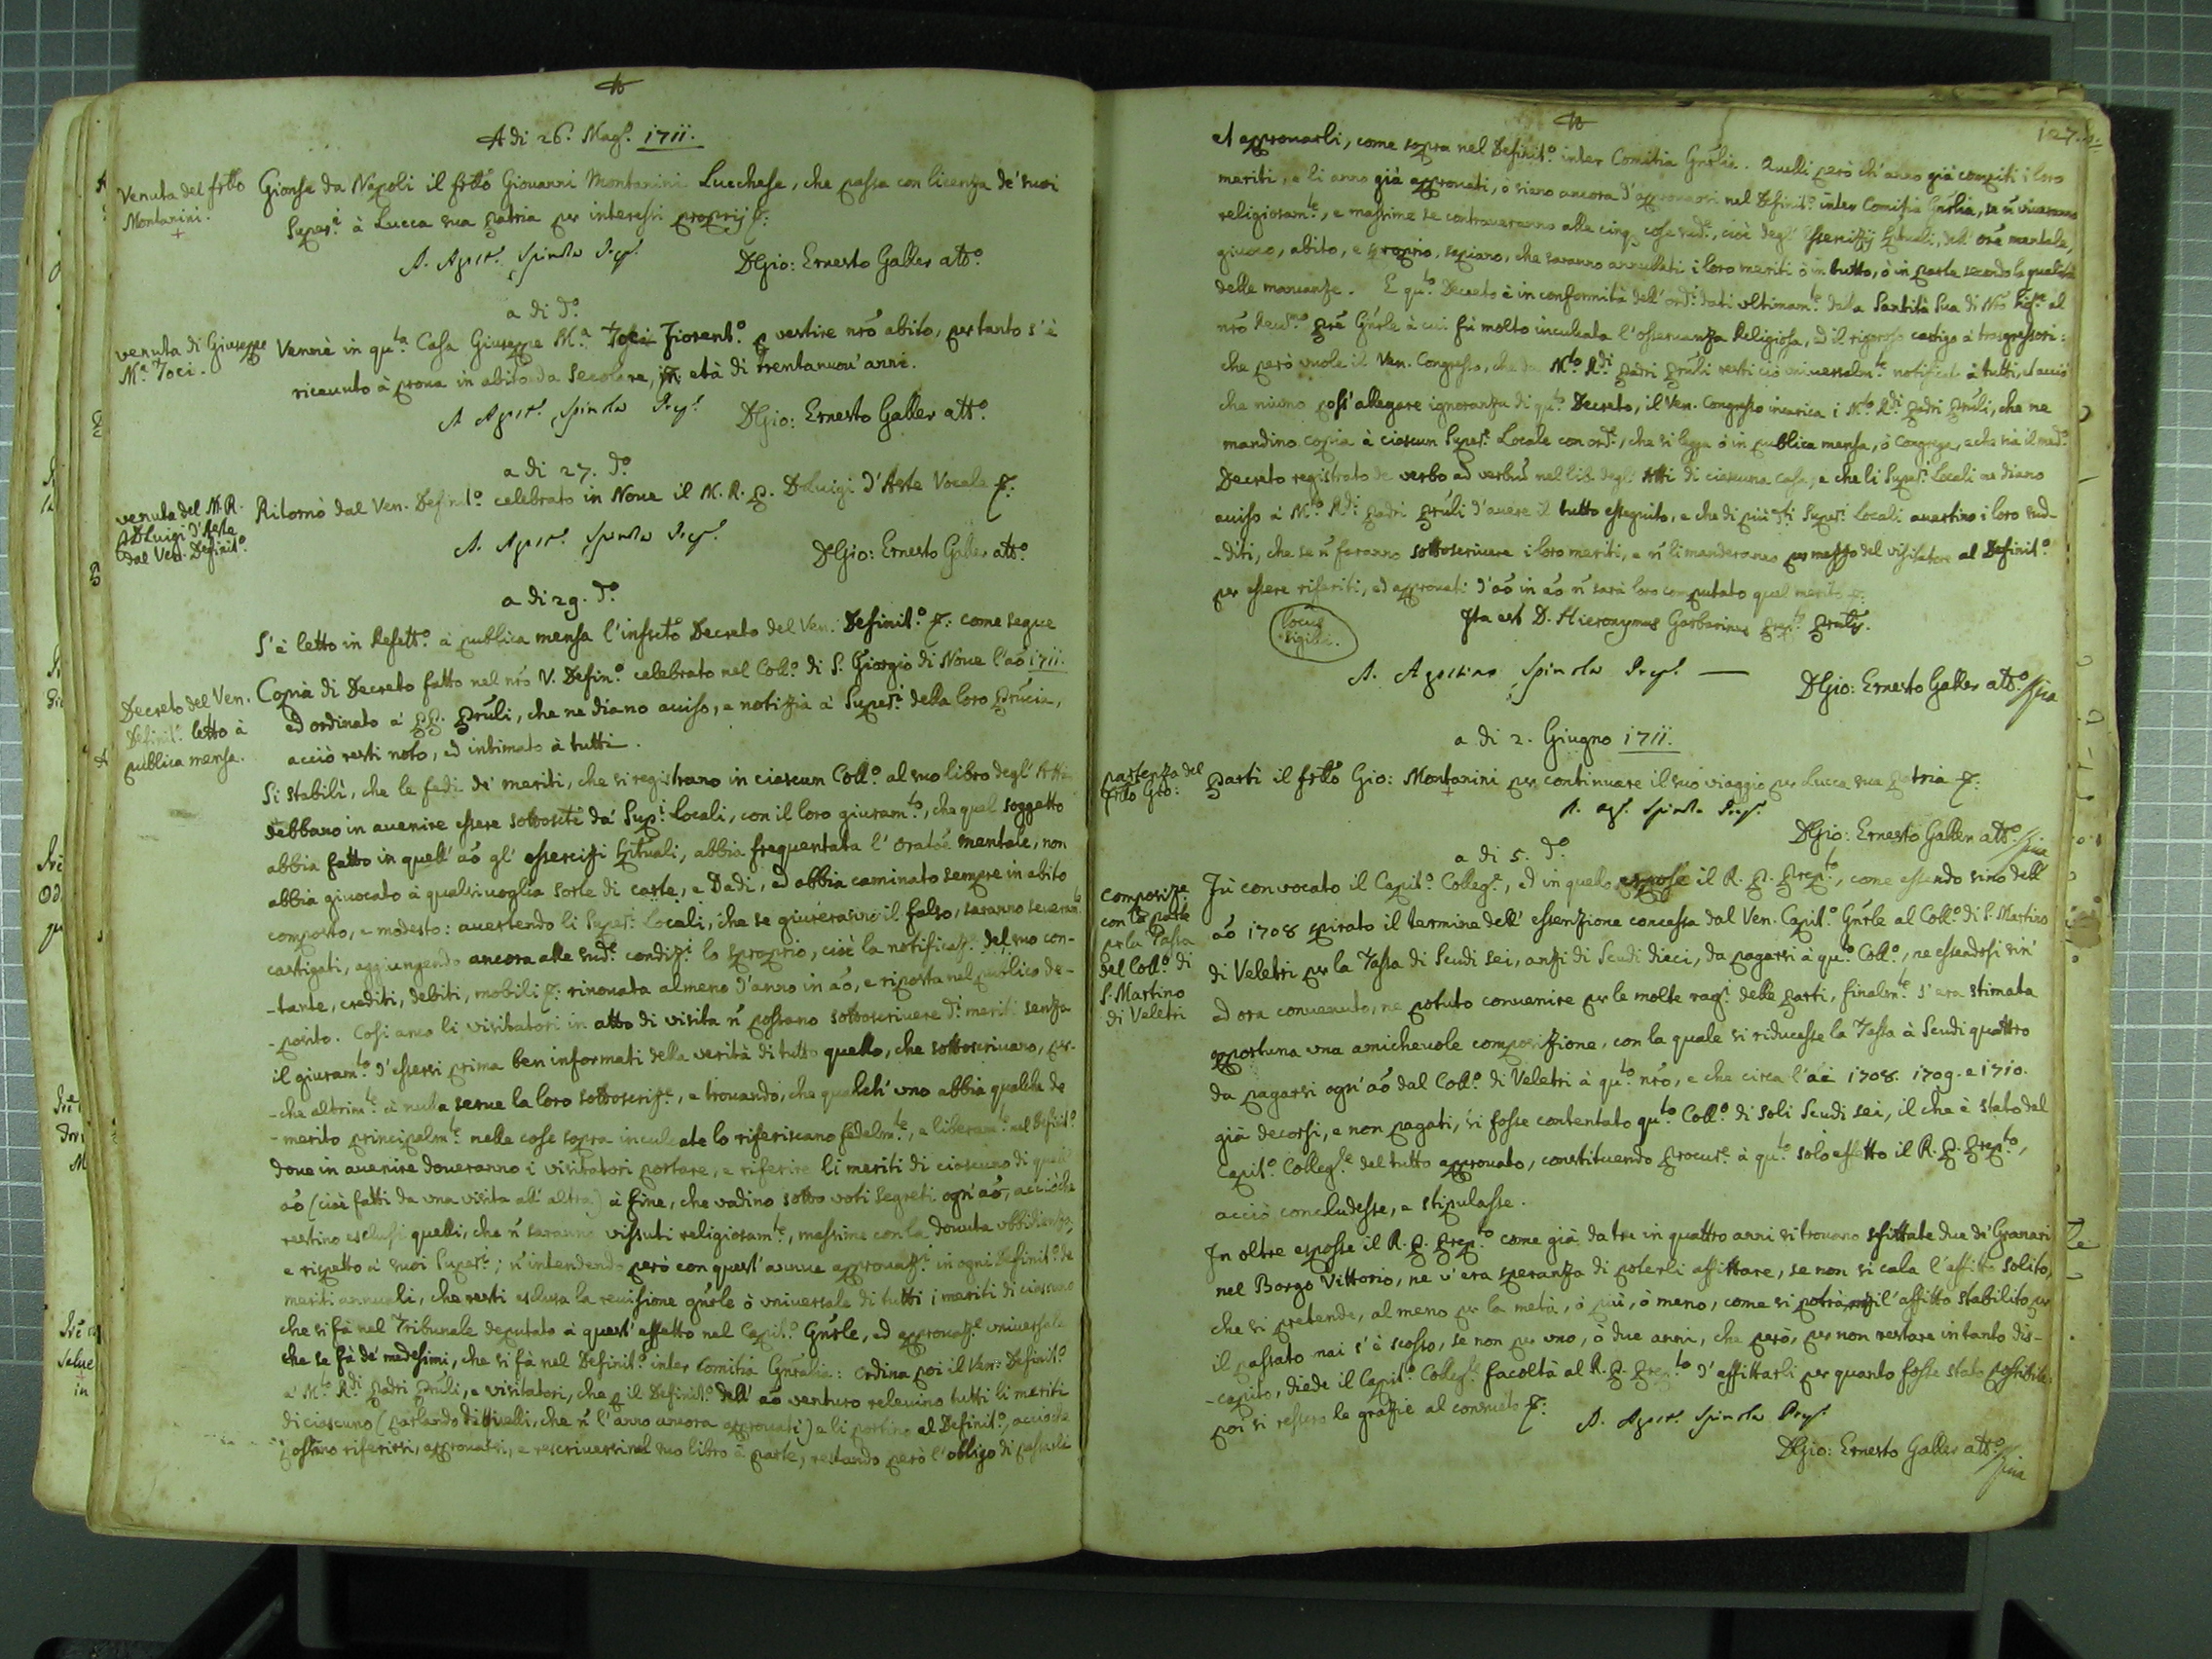 A di 26. Mag.º 1711.
Venuta del frtto
Montanini.
Gionse da Napoli il frtto Giovanni Montanini Lucchese, che passa con licenza de' suoi
Super.i à Lucca sua patria per interessi proprij &:
A. Agost. Spinola Prep.
D Gio: Ernesto Galler att.º
a di d.º
venuta di Giuseppe
M.ª Toci.
Venne in qu.ta Casa Giuseppe M.ª Toci Fiorent.º p vestire nrõ abito, pertanto s'è
riceuuto à proua in abito da secolare, in età di trentanoui anni.
A Agost. Spinola Prep.
D Gio: Ernesto Galler att.º
a di 27. d.º
venuta del M. R.
P. D Luigi d'Aste
dal Ven. Definit.º
Ritornò dal Ven. Definit.º celebrato in Noue il M. R. P. D Luigi d'Aste Vocale &:
A. Agost. Spinola Prep.
D Gio: Ernesto Galler att.º
a di 29. d.º
S'è letto in Refett.º à publica mensa l'infscto Decreto del Ven. Definit.º &: come segue
Decreto del Ven.
Definit.º letto à
publica mensa.
Copia di Decreto fatto nel nrõ V. Defin.º celebrato nel Coll.º di S. Giorgio di Noue l'aõ 1711.
ed ordinato a' PP. Prũli, che ne diano auiso, e notizia a' Super.i della loro Prũcia,
acciò resti noto, ed intimato à tutti.
Si stabilì, che le fedi de' meriti, che si registrano in ciascun Coll.º al suo libro degl'Atti
debbano in auenire essere sottoscte da' Sup.i Locali, con il loro giuram.to, che quel soggetto
abbia fatto in quell'aõ gl'essercizi spituali, abbia frequentata l'oratõe mentale, non
abbia giuocato à qualsiuoglia sorte di carte, e Dadi, ed abbia caminato sempre in abito
composto, e modesto: auertendo li Super.i Locali, che se giureranno il falso, saranno seueram.te
castigati, aggiungendo ancora alle sud.e condiz.i lo sproprio, cioè la notificaz.e del suo con-
-tante, crediti, debiti, mobili &: rinouata almeno d'anno in aõ, e riposta nel publico de-
-posito. Così anco li visitatori in atto di visita ñ possano sottoscriuere d.i meriti senza
il giuram.to d'essersi prima ben informati della verità di tutto quello, che sottoscriuano, per-
-che altrim.te à nulla serue la loro sottoscriz.e, e trouando, che qualch'uno abbia qualche de
-merito principalm.te nelle cose sopra inculcate lo riferiscano fedelm.te, e liberam.te nel Definit.º
doue in auenire doueranno i visitatori portare, e riferire li meriti di ciascuno di quell'
aõ (cioè fatti da vna visita all'altra) à fine, che vadino sotto voti segreti ogn'aõ, acciòche
restino esclusi quelli, che ñ saranno vissuti religiosam.te, massime con la douuta vbbidienza,
e rispetto a' suoi Super.i; ñ intendendo però con quest'annue approuaz.i in ogni Definit.º de
meriti annuali, che resti esclusa la reuisione gnrle ò vniuersale di tutti i meriti di ciascuno
che si fà nel Tribunale deputato à quest'effetto nel Capit.º Gnrle, ed approuaz.e vniuersale
che se fà de' medesimi, che si fà nel Definit.º inter Comitia Gnralia: ordina poi il Ven. Definit.º
a' M.to R.di Padri Prũli, e visitatori, che p il Definit.º dell'aõ venturo releuino tutti li meriti
di ciascuno (parlando di quelli, che ñ l'anno ancora approuati) e li portino al Definit.º, acciòche
possano riferirsi, approuarsi, e rescriuersi nel suo libro à parte, restando però l'obligo di passarli
127.
et approuarli, come sopra nel Definit.º inter Comitia Gnrlia. Quelli però ch'anno già compiti i loro
meriti, e li anno già approuati, o siano ancora d'approuarsi nel Definit.º inter Comitia Gnrlia, se ñ viueranno
religiosam.te, e massime se controueranno alle cinq. cose sud.e, cioè degl'Essercizij spituali, dell'orõe mentale,
giuoco, abito, e sproprio, sapiano, che saranno annullati i loro meriti ò in tutto, ò in parte secondo la qualità
delle mancanze. E qu.to Decreto è in conformità dell'ord.i dati vltimam.te dalla Santità Sua di Nrõ Sig.re al
nrõ Reu.mo Prẽ Gnrle à cui fù molto inculcata l'osseruanza Religiosa, ed il rigoroso castigo a' trasgressori:
che però vuole il Ven. Congresso, che da M.to R.di Padri Prũli resti ciò vniuersalm.te notificato à tutti, et acciò
che niuno poss'allegare ignoranza di qu.to Decreto, il Ven. Congresso incarica i M.to R.di Padri Prũli, che ne
mandino copia à ciascun Super.e Locale con ord.e, che si legga ò in publica mensa, ò Congrega, e che sia il med.º
Decreto registrato de verbo ad verbũ nel lib. degl'Atti di ciascuna casa, e che li Super.i Locali ne diano
auiso a' M.to R.di Padri Prũli d'auere il tutto esseguito, e che di più d.i Super.i Locali auertino i loro sud-
-diti, che se ñ faranno sottoscriuere i loro meriti, e ñ li manderanno per mezzo del visitatore al Definit.º
per essere riferiti, ed approuati d'aõ in aõ ñ sarà loro computato quel merito &:
locus
sigilli.
Ita est D. Hieronymus Gasbarinus Prep.tus Prũlis.
A. Agostino Spinola Prep.
D Gio: Ernesto Galler att.º
a di 2. Giugno 1711.
partenza del
frtto Gio:
Partì il frtto Gio: Montanini per continuare il suo viaggio per Lucca sua patria &:
A. Ag. Spinola Prep.
D Gio: Ernesto Galler att.º
a di 5. d.º
Composize
con la parte
per la Tassa
del Coll.º di
S. Martino
di Veletri
Fù conuocato il Capit.º Colleg.e, ed in quello espose il R. P. Prep.to, come essendo sino dell'
aõ 1708 spirato il termine dell'essenzione concessa dal Ven. Capit.º Gnrle al Coll.º di S. Martino
di Veletri per la Tassa di Scudi sei, anzi di Scudi dieci, da pagarsi à qu.to Coll.º, ne essendosi sin'
ad ora conuenuto, ne potuto conuenire per le molte rag.i delle parti, finalm.te s'era stimata
opportuna vna amicheuole composizione, con la quale si riducesse la Tassa à Scudi quattro
da pagarsi ogn'aõ dal Coll.º di Veletri à qu.to nrõ, e che circa l'ãi 1708. 1709. e 1710.
già decorsi, e non pagati, si fosse contentato qu.to Coll.º di soli Scudi sei, il che è stato dal
Capit.º Colleg.e del tutto approuato, constituendo Procur.e à qu.to solo effetto il R. P. Prep.to,
acciò concludesse, e stipulasse.
In oltre espose il R. P. Prep.to come già da tre in quattro anni si trouano sfittate due de' Granari
nel Borgo Vittorio, ne v'era speranza di poterli affittare, se non si cala l'affitto solito,
che si pretende, al meno per la metà, ò più, ò meno, come si potrà, l'affitto stabilito per
il passato mai s'è scosso, se non per vno, ò due anni, che però, per non restare in tanto dis-
-capito, diede il Capit.º Colleg.e facoltà al R. P. Prep.to d'affittarli per quanto fosse stato possibile:
poi si resero le grazie al consueto &:
A. Agost. Spinola Prep.
D Gio: Ernesto Galler att.º